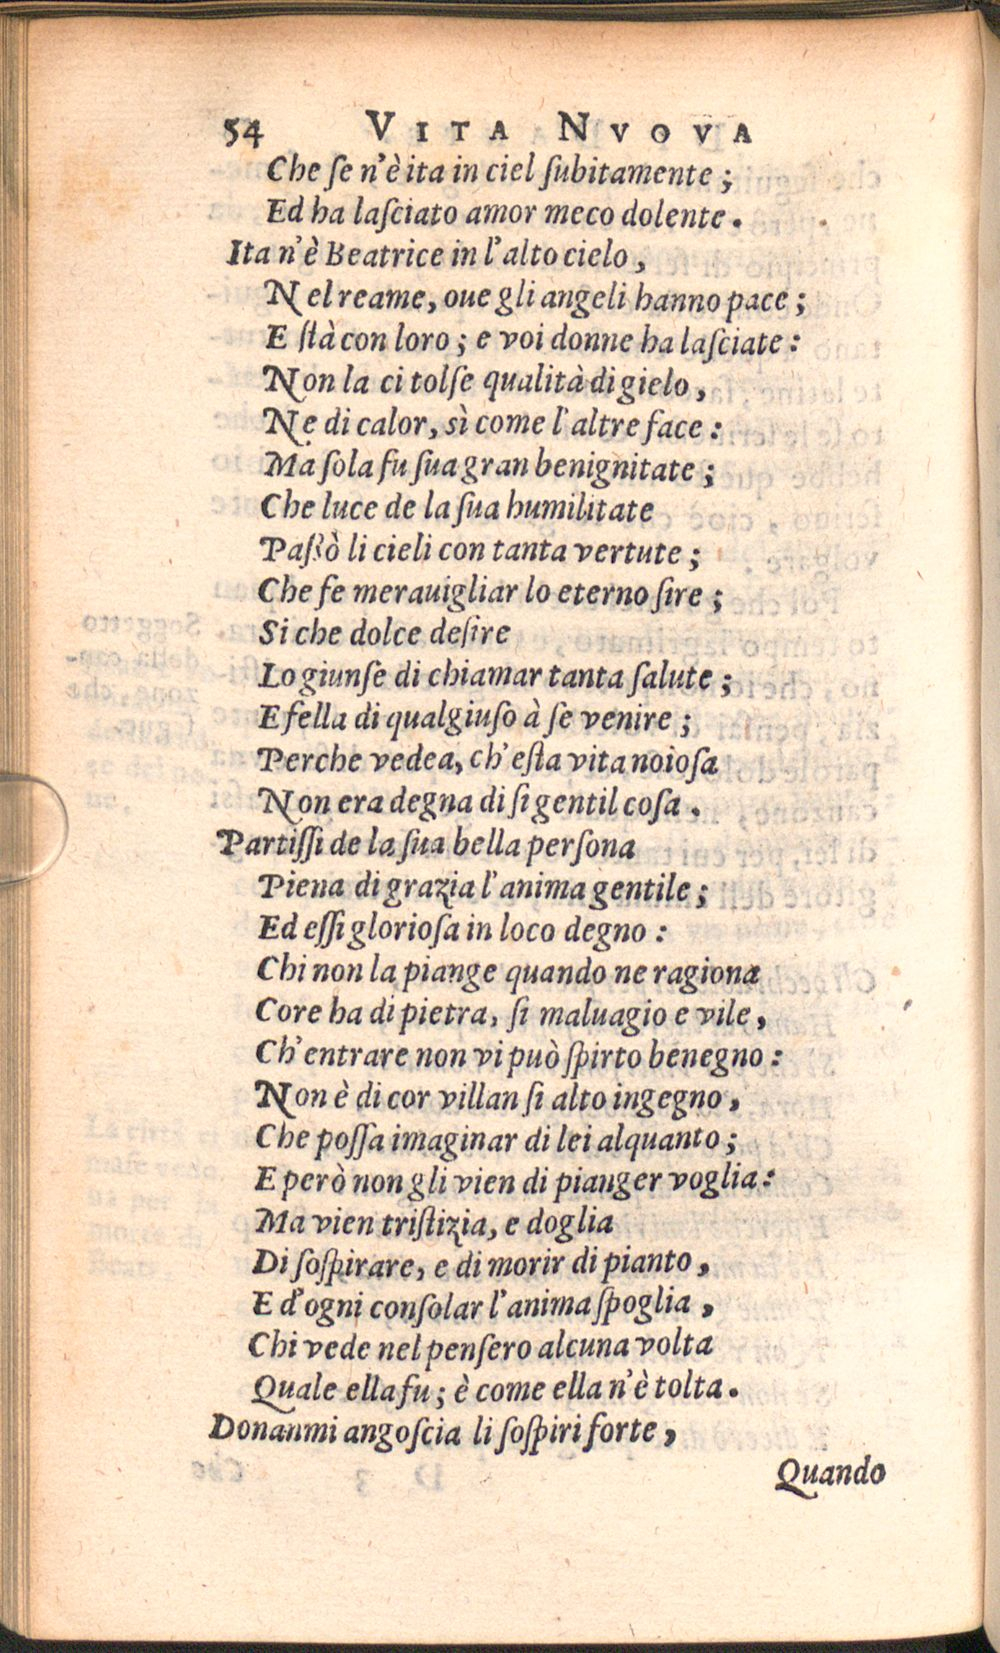 54 VITA NVOVA
Che ſe n'è ita in ciel ſubitamente ;
Ed ha laſciato amor meco dolente .
Ita n'è Beatrice in l'alto cielo ,
Nel reame, oue gli angeli hanno pace ;
E ſtà con loro ; e voi donne ha laſciate :
Non la ci tolſe qualità di gielo ,
Ne di calor, sì come l'altre face :
Ma ſola fu ſua gran benignitate ;
Che luce de la ſua humilitate
Paſsò li cieli con tanta vertute ;
Che fe merauigliar lo eterno ſire ;
Si che dolce deſire
Lo giunſe di chiamar tanta ſalute ;
E fella di qua giuſo à ſe venire ;
Perche vedea, ch'eſta vita noioſa
Non era degna di ſi gentil coſa .
Partiſſi de la ſua bella perſona
Piena di grazia l'anima gentile ;
Ed eſſi glorioſa in loco degno :
Chi non la piange quando ne ragiona
Core ha di pietra, ſi maluagio e vile ,
Ch'entrare non vi può ſpirto benegno :
Non è di cor villan ſi alto ingegno ,
Che poſſa imaginar di lei alquanto ;
E però non gli vien di pianger voglia :
Ma vien triſtizia, e doglia
Di ſoſpirare, e di morir di pianto ,
E d'ogni conſolar l'anima ſpoglia ,
Chi vede nel penſero alcuna volta
Quale ella fu ; è come ella n'è tolta .
Donanmi angoſcia li ſoſpiri forte ,
Quando